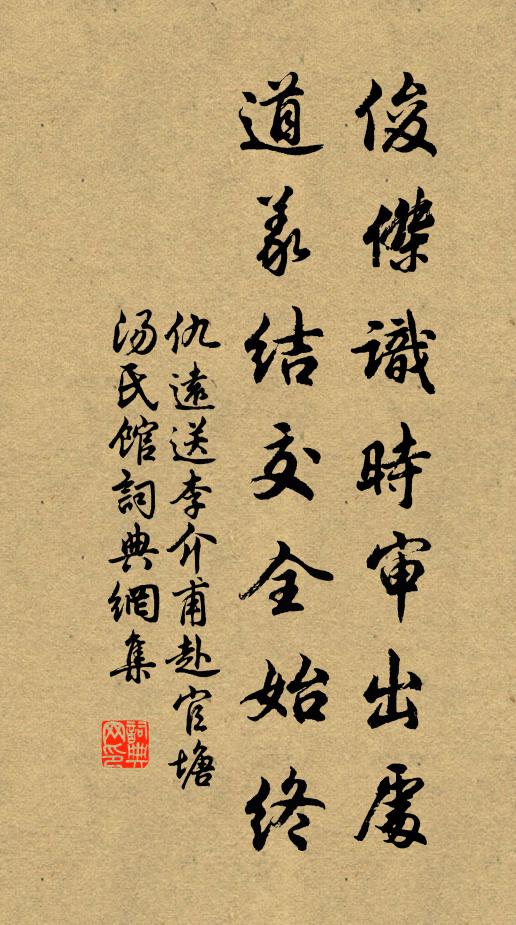 俊傑識時审出處
道義結交全始終
仇遠送李介甫赴官塘
湯氏館詞典網集
詞典
网印